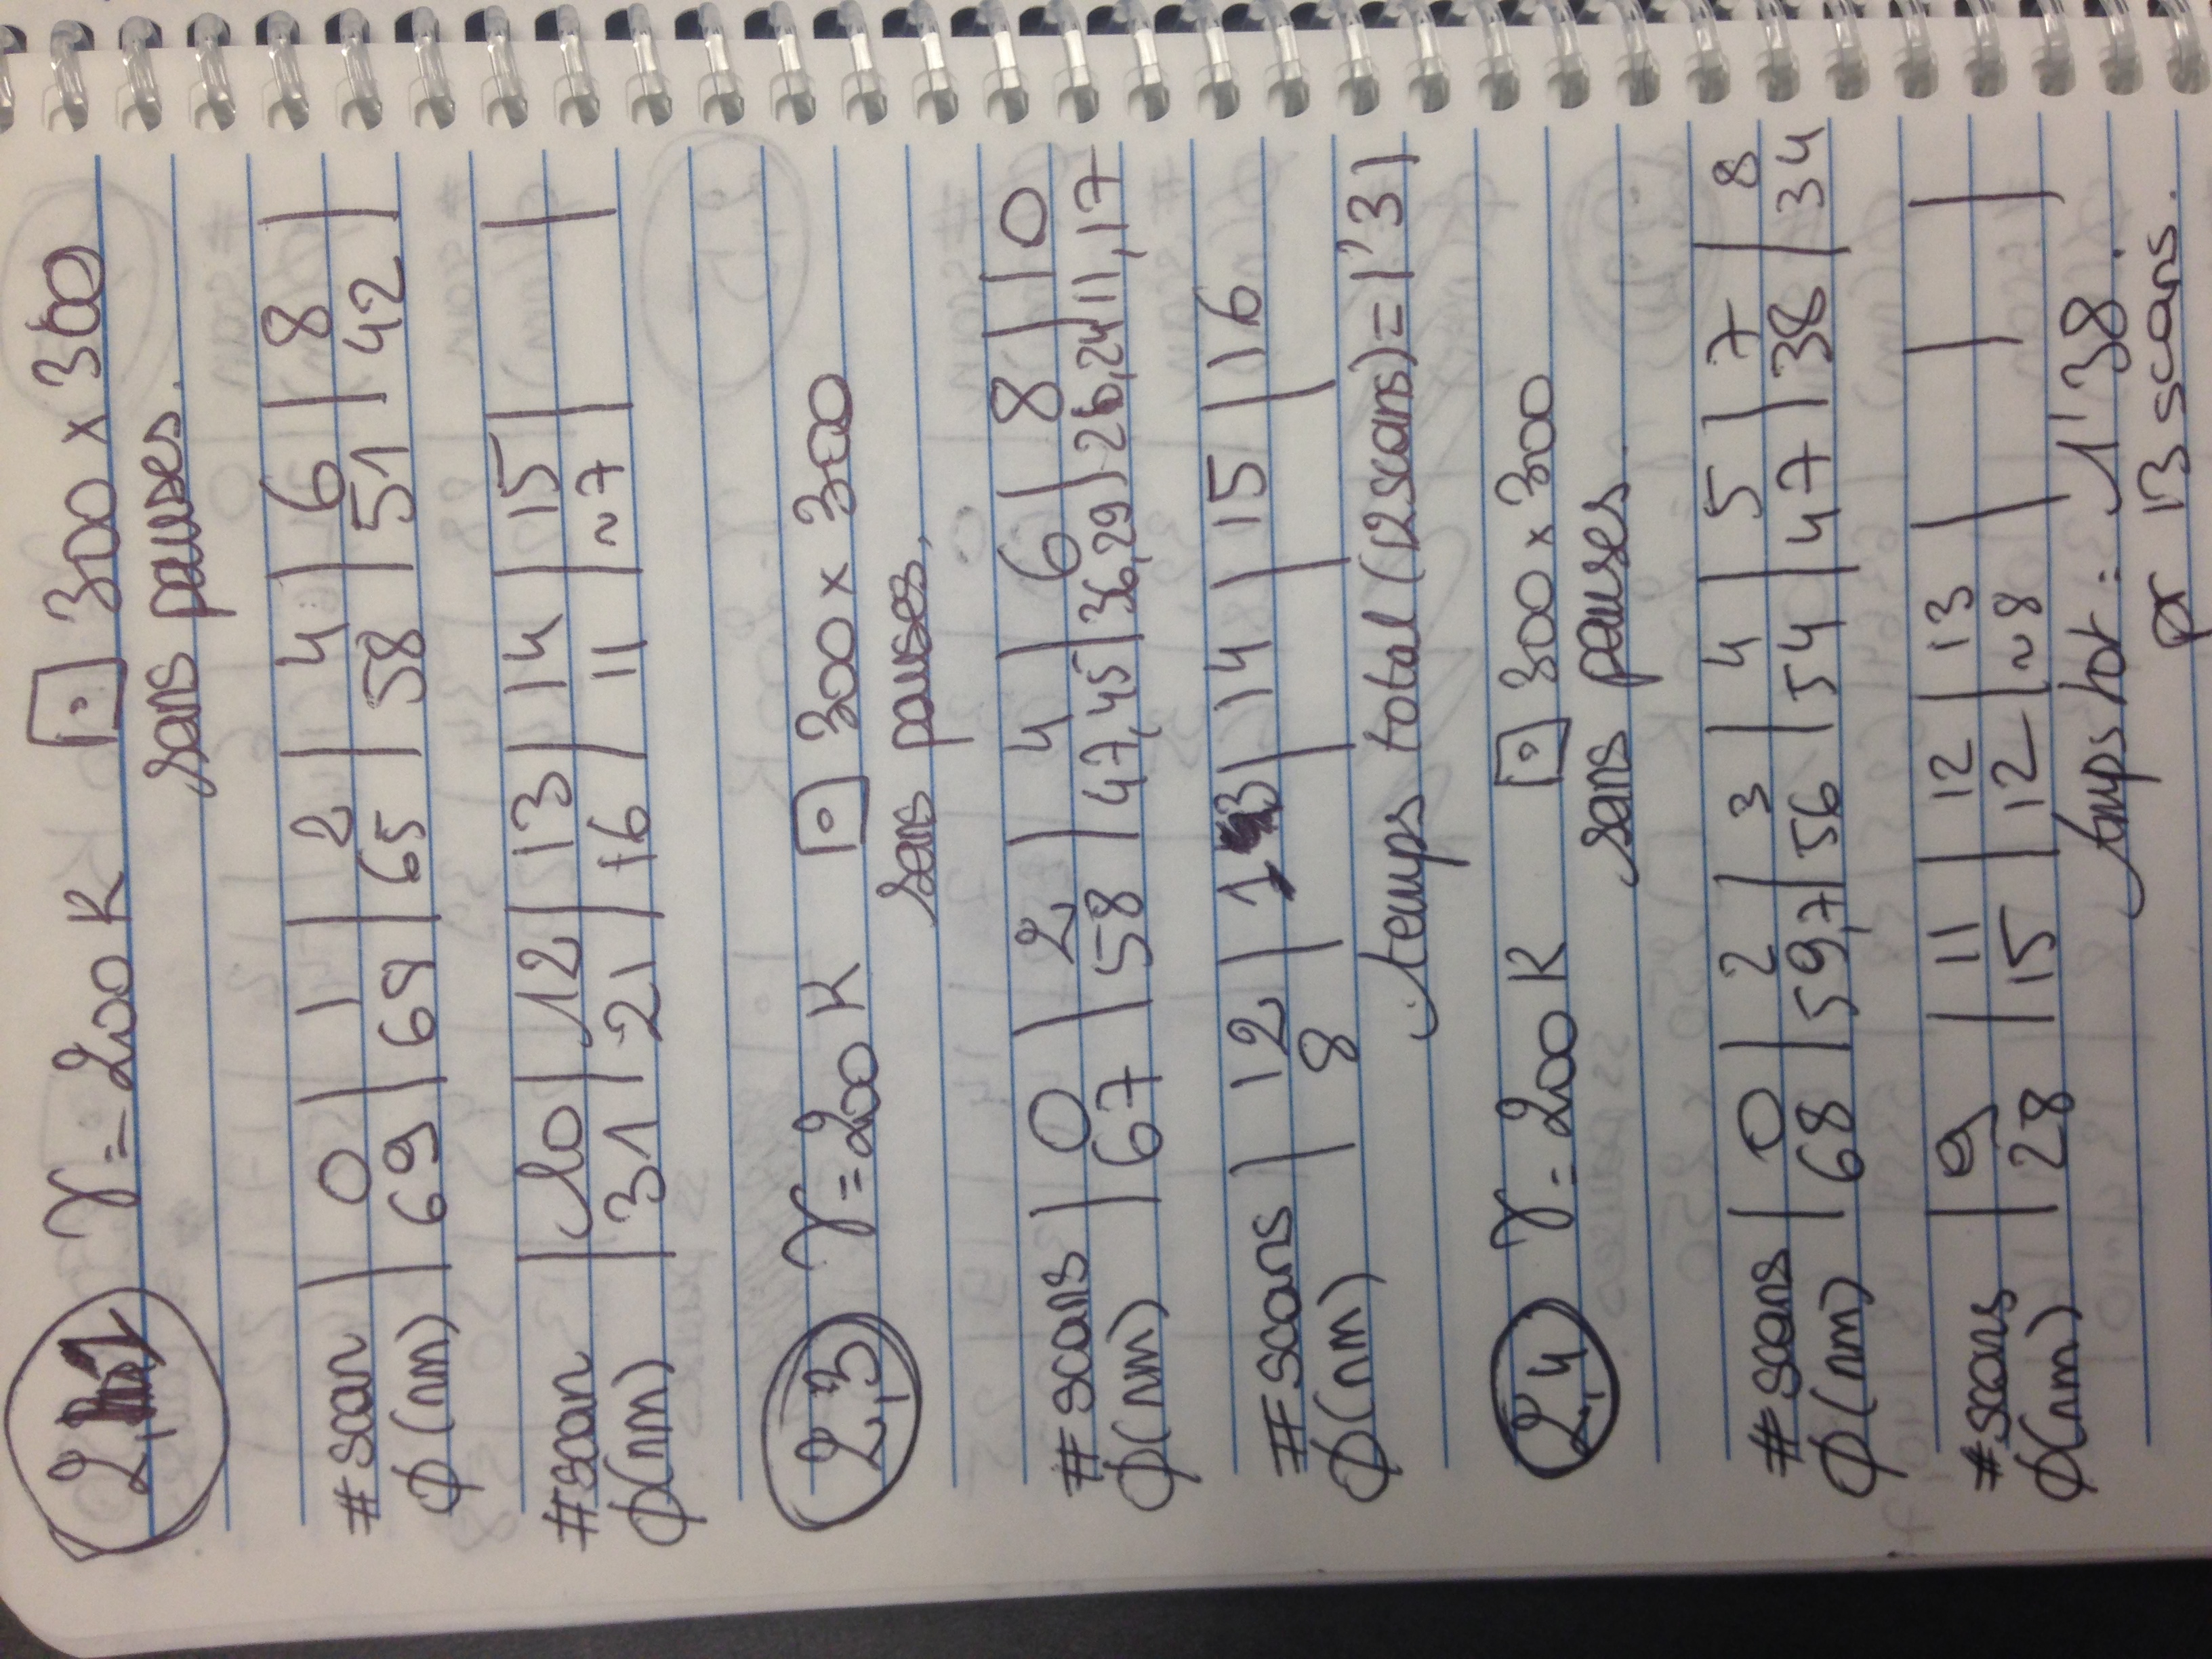 2,1 γ = 200 K ⊡ 300 x 300
sans pauses.
#scan | 0 | 1 | 2 | 4 | 6 | 8 |
ϕ(nm) | 69 | 68 | 65 | 58 | 51 | 42 |
#scan | 10 | 12 | 13 | 14 | 15 | |
ϕ(nm) | 31 | 21 | 16 | 11 | ~7 | |
2,3 γ = 200 K ⊡ 300 x 300
sans pauses.
#scans | 0 | 2 | 4 | 6 | 8 | 10
ϕ(nm) | 67 | 58 | 47,45 | 36,29 | 26,24 | 11,17
#scans | 12 | 13 | 14 | 15 | 16
ϕ(nm) | 8 | | | |
temps total (12 scans) = 1'31
2,4 γ = 200 K ⊡ 300 x 300
sans pauses.
#scans | 0 | 2 | 3 | 4 | 5 | 7 | 8
ϕ(nm) | 68 | 59,7 | 56 | 54 | 47 | 38 | 34
#scans | 9 | 11 | 12 | 13 | | |
ϕ(nm) | 28 | 15 | 12 | ~8 | | |
temps tot = 1'38.
pr 13 scans.